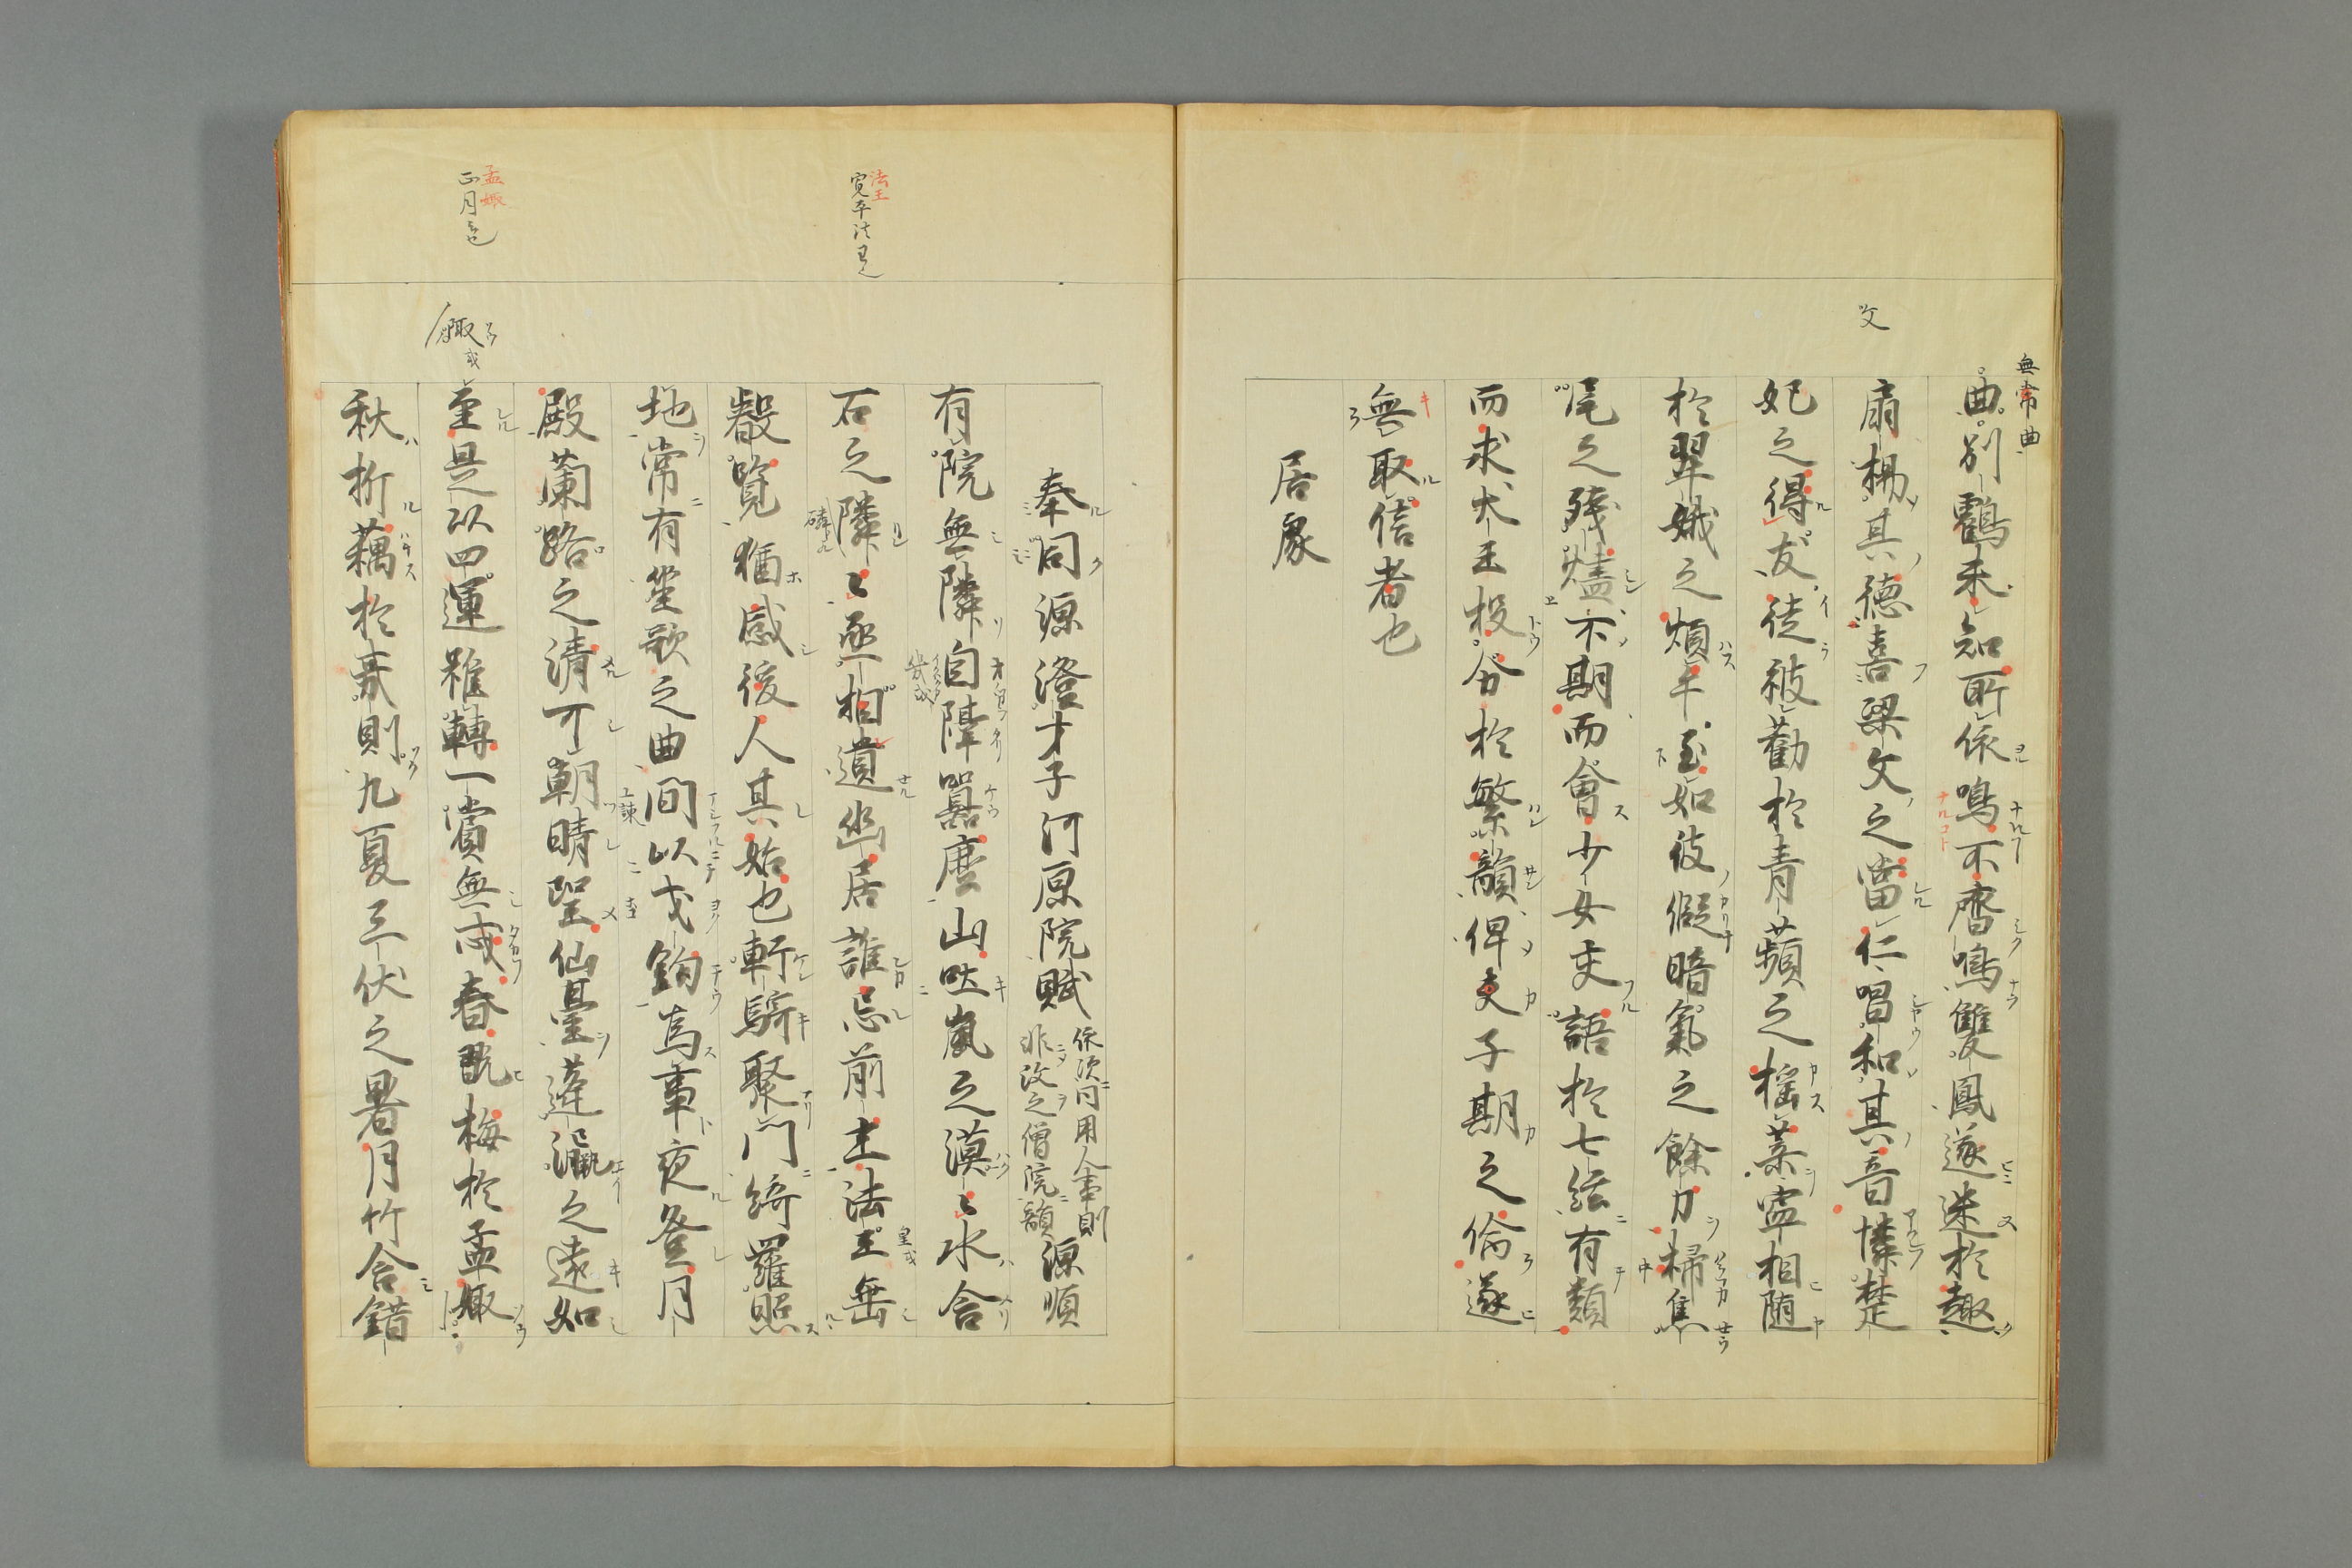 無常曲
曲別鶴未知所依鳴不齊鳴雙鳳遂迷於趣
文
扇楊其徳喜梁文之當仁唱和其音憐楚
妃之得友徒被勸於青蘋之搖葉寧相随
於翠娥之煩手至如彼假暗氣之餘力掃焦
尾之殘燼不期而會少女交語於七絃有類
而求大王投分於繁韻俾夫子期之倫遂
無取信者也
居處
奉同源澄才子河原院賦
依次同用人害則
非改之僧院韻
源順
有院無隣自障囂塵山吐嵐之漠〻水含
石之隣〻丞相遺幽居誰忘前主法王垂
叡覽猶感後人其始也軒騎聚門綺羅照
地常有笙歌之曲間以弋釣為事夜登月
殿蘭路之清可朝晴望仙臺蓬瀛之遠如
至是以四運雖轉一賞無忒春翫梅於孟娵
秋折藕於夷則九夏三伏之暑月竹含錯
法王
寛平法皇也
孟娵
正月名也